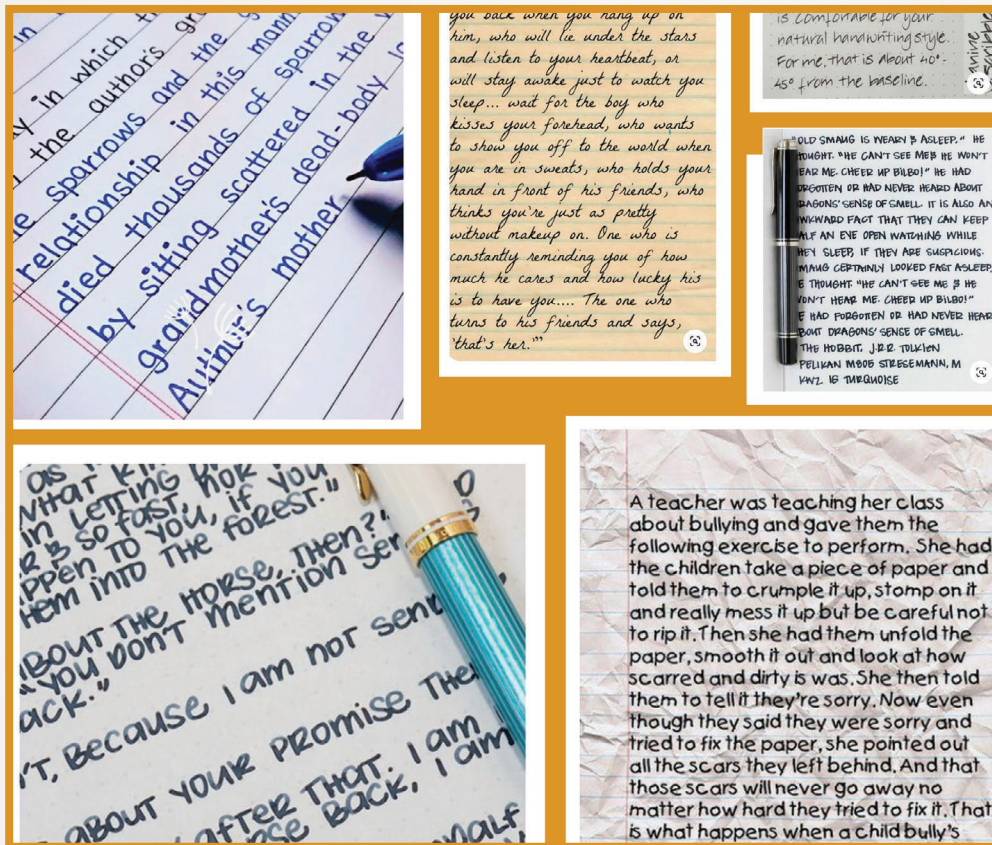 in
y in which
the author's gr
e sparrows and the
relationship in this mann
died thousands of sparrow
by sitting scattered in the
grandmother's dead-body
Author's mother
you back when you hang up on
him, who will lie under the stars
and listen to your heartbeat, or
will stay awake just to watch you
sleep... wait for the boy who
kisses your forehead, who wants
to show you off to the world when
you are in sweats, who holds your
hand in front of his friends, who
thinks you're just as pretty
without makeup on. One who is
constantly reminding you of how
much he cares and how lucky his
is to have you.... The one who
turns to his friends and says,
'that's her.'"
is comfortable for your
natural handwriting style.
For me, that is about 40°-
45° from the baseline.
"OLD SMAUG IS WEARY & ASLEEP." HE
HOUGHT. "HE CAN'T SEE ME & HE WON'T
EAR ME. CHEER UP BILBO!" HE HAD
ORGOTTEN OR HAD NEVER HEARD ABOUT
RAGONS' SENSE OF SMELL. IT IS ALSO AN
WKWARD FACT THAT THEY CAN KEEP
ALF AN EYE OPEN WATCHING WHILE
HEY SLEEP, IF THEY ARE SUSPICIOUS.
MAUG CERTAINLY LOOKED FAST ASLEEP,
E THOUGHT "HE CAN'T SEE ME & HE
WON'T HEAR ME. CHEER UP BILBO!"
E HAD FORGOTTEN OR HAD NEVER HEAR
BOUT DRAGONS' SENSE OF SMELL.
THE HOBBIT, J.R.R. TOLKIEN
PELIKAN M805 STRESEMANN, M
KWZ IG TURQUOISE
as
WHAT
IN LETTING
R & SO FAST, NOR
PPEN TO YOU, IF YOU
HEM INTO THE FOREST."
ABOUT THE HORSE, THEN?"
"YOU DON'T MENTION SEN
ACK."
'T, BECAUSE I am not SEND
ABOUT YOUR PROMISE THE
AFTER THAT. I am
BACK, I am
HALF
A teacher was teaching her class
about bullying and gave them the
following exercise to perform. She had
the children take a piece of paper and
told them to crumple it up, stomp on it
and really mess it up but be careful not
to rip it. Then she had them unfold the
paper, smooth it out and look at how
scarred and dirty is was. She then told
them to tell it they're sorry. Now even
though they said they were sorry and
tried to fix the paper, she pointed out
all the scars they left behind. And that
those scars will never go away no
matter how hard they tried to fix it. That
is what happens when a child bully's